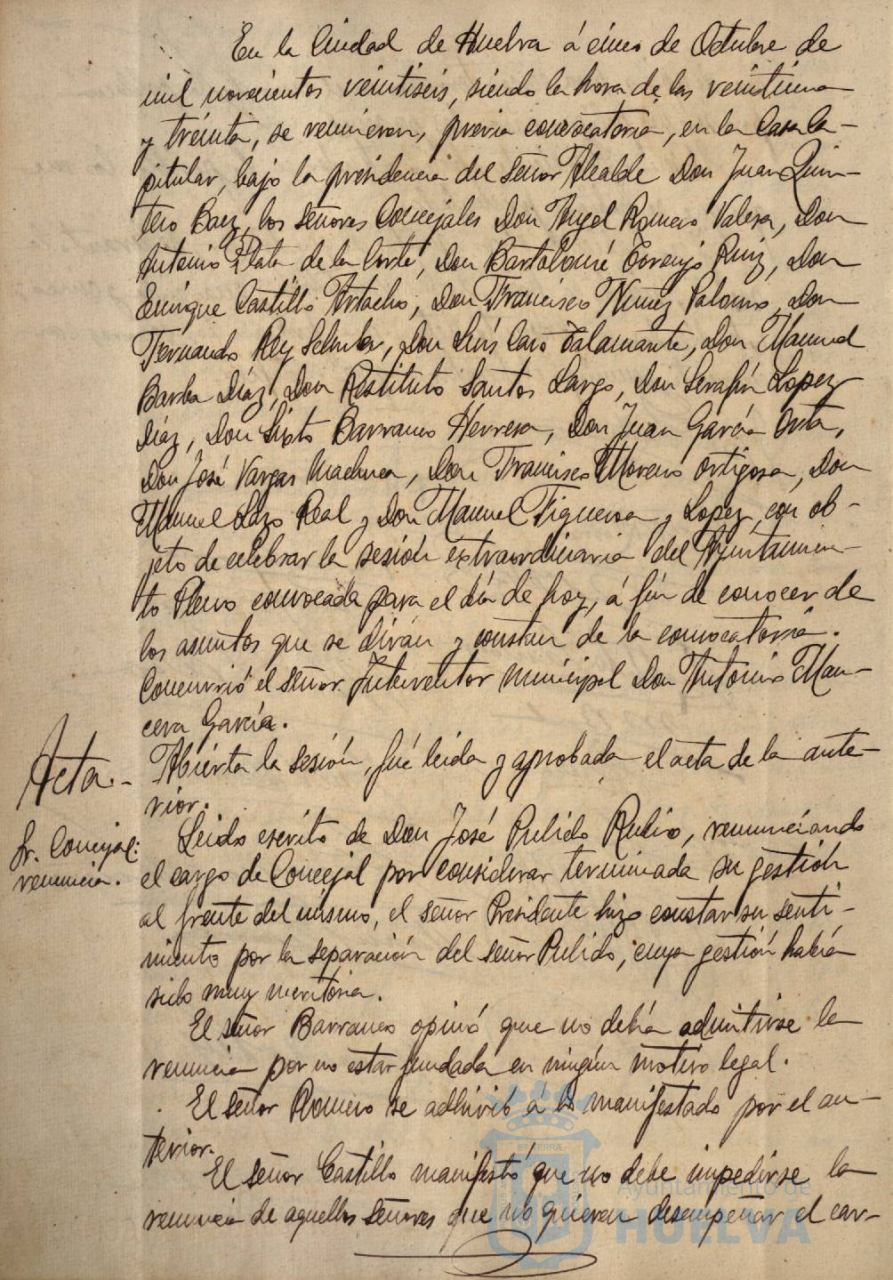 En la Ciudad de Huelva á cinco de Octubre de
mil novecientos veintiseis, siendo la hora de las veintiuna
y treinta, se reunieron, previa convocatoria, en la Casa Ca-
pitular, bajo la presidencia del señor Alcalde Don Juan Quin-
tero Baez, los señores Concejales Don Angel Romero Valera, Don
Antonio Plata de la Corte, Don Bartolomé Toronjo Ruiz, Don
Enrique Castillo Artacho, Don Francisco Nuñez Palomo, Don
Fernando Rey Don Luís Caro Talamante, Don Manuel
Barba Díaz, Don Restituto Santos Largo, Don Serafín Lopez
Díaz, Don Sixto Barranco Herrera, Don Juan García Orta,
Don José Vargas Machuca, Don Francisco Moreno Ortigosa, Don
Manuel Lazo Real y Don Manuel Figueroa y Lopez, con ob-
jeto de celebrar la sesión extraordinaria del Ayuntamien-
to Pleno convocada para el día de hoy, á fin de conocer de
los asuntos que se dirán y constan de la convocatoria.
Concurrió el señor Interventor municipal Don Antonio Man-
cera García.
Acta.-
Abierta la sesión, fué leida y aprobada el acta de la ante-
rior.
Sr. Concejal:
renuncia.
Leido escrito de Don José Pulido Rubio, renunciando
el cargo de Concejal por considerar terminada su gestión
al frente del mismo, el señor Presidente hizo constar su senti-
miento por la separación del señor Pulido, cuya gestión había
sido muy meritoria.
El señor Barranco opinó que no debía admitirse la
renuncia por no estar fundada en ningún motivo legal.
El señor Romero se adhirió á lo manifestado por el an-
terior.
El señor Castillo manifestó que no debe impedirse la
renuncia de aquellos señores que no quieran desempeñar el car-
Ayuntamiento de
HUELVA